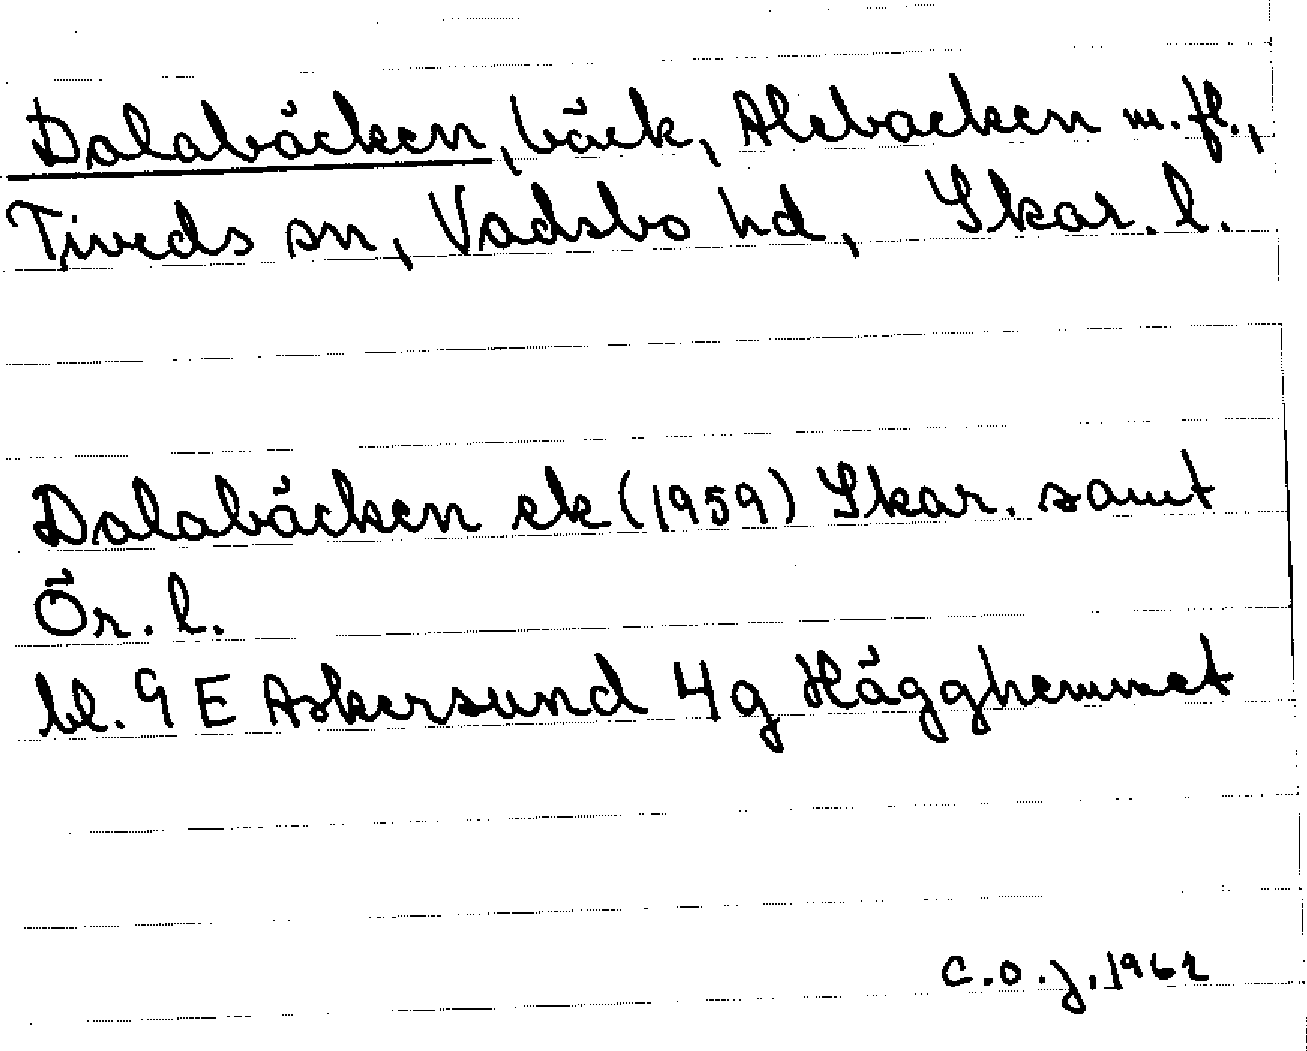 Dalabäcken, bäck, Alebacken m.fl.,
Tiveds sn, Vadsbo hd, Skar. l.
Dalabäcken ek (1959) Skar. samt
Ör. l.
bl. 9 E Askersund 4g Hägghemmet
C.O.J. 1962